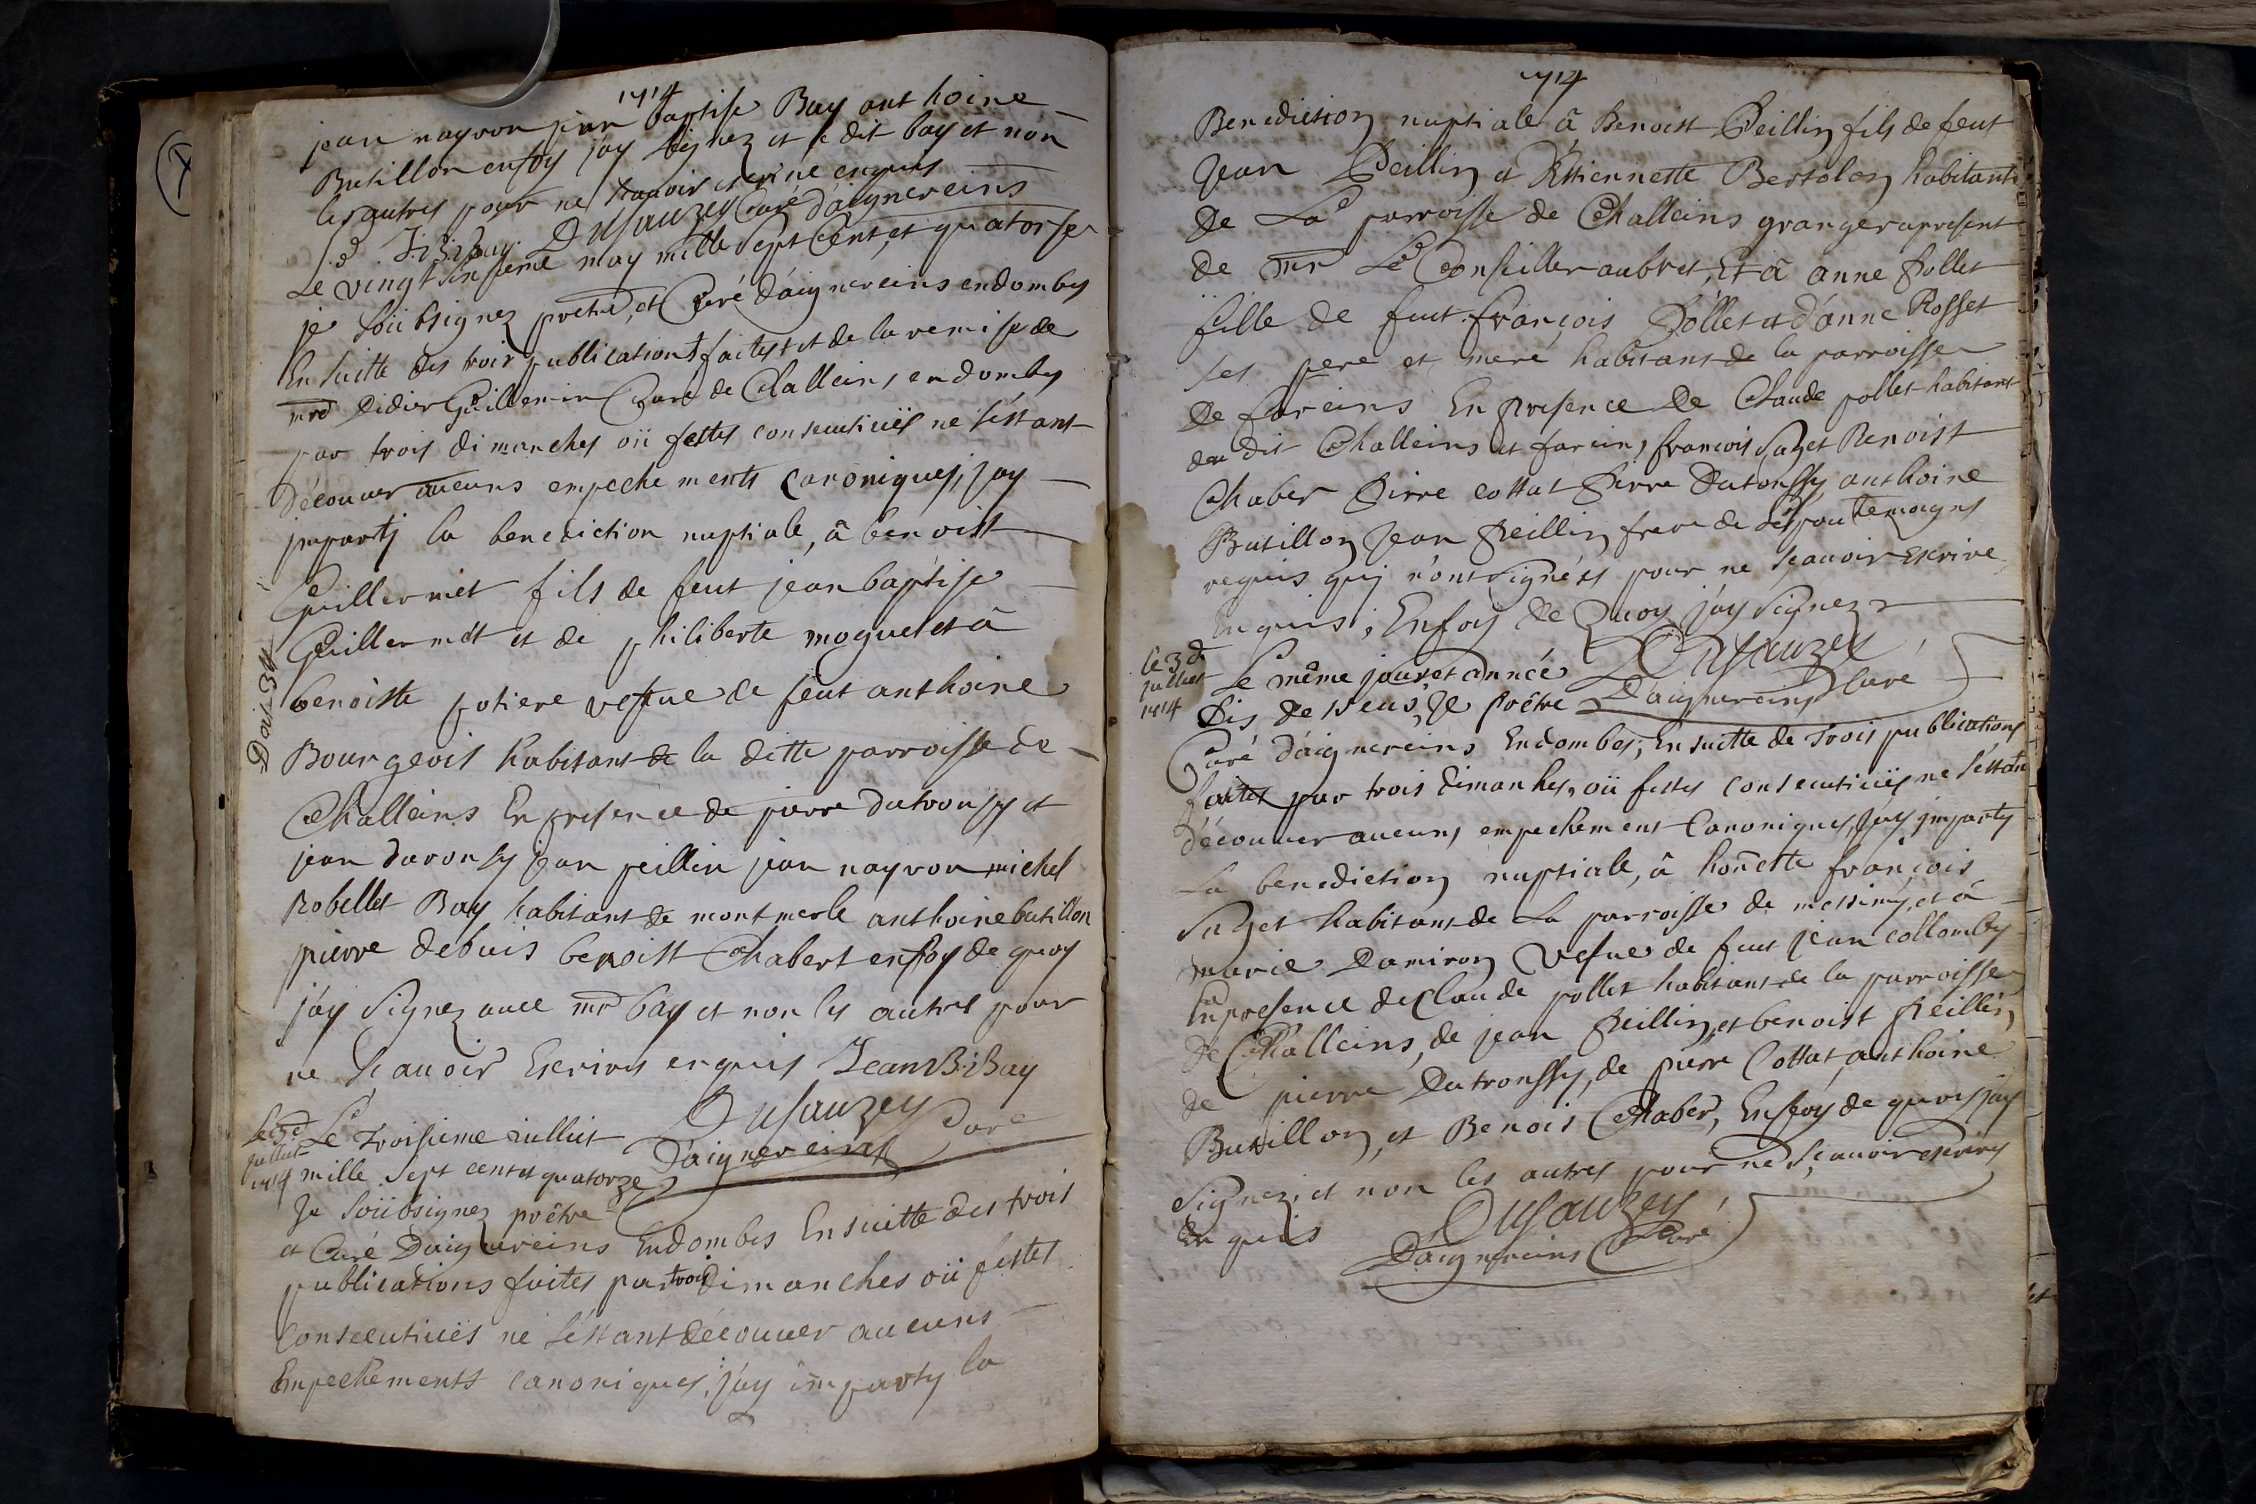 1714
jean nayron jean baptise Bay anthoine
Butillon enfoy jay signez et le dit bay et non
les autres pour ne scauoir escrire enquis
J: B: Bay Dusauzey Curé d'aignereins
Le vingt sinsieme may mille Sept Cent, et quatorse
je soübsignez prêtre, et Curé d'aignereins endombes
En suitte des trois publications faites et de la remise de
mre Didier Guillemin Curé de Challeins endombes
par trois dimanches oü festes consecutiües ne s'estant
découuer aucuns empechements canoniques, jay
imparti la benediction nuptiale, â benoist
Guillermet fils de feut jean baptise
Guillermet et de philiberte moguet et â
benoiste potiere vefue de feut anthoine
Bourgeois habitant de la ditte parroisse de
Challeins En presence de pierre dutronssy et
jean daronsy jean peillin jean nayron michel
Robellet Bay habitant de montmerle anthoine butillon
pierre debuis benoist Chabert enfoy de quoy
j'ay signez auec mr bay et non les autres pour
ne scauoir Escrire enquis Jean B: Bay
Dusauzey Curé
D'aignereins
le 3e
juillet
1714
Le Troisieme iulliet
mille sept cent et quatorze
Je soübsignez prêtre
et Curé D'aignereins Endombes Ensuitte des trois
publications faites par trois dimanches oü festes
Consecutiües ne s'éstant découuer aucuns
Empechements canoniques, j'ay imparty la
1714
Benediction nuptiale â Benoist Peillin fils de feut
Jean Peillin et d'Estiennette Bertolon habitant
de La parroisse de Challeins granger apresent
de mr Le Consillier aubret, Et â anne Pollet
fille de feut françois Pollet et d'anne Rosset
ses pere et mere habitans de la parroisse
De fareins En presence De Claude pollet habitant
du dit Challeins et fareins, françois Suzet Benoist
Chaber Pirre cottat Pierre Dutronssy anthoine
Butillon Jean Peillin frere de l'espou temoigns
requis quj n'ont signéts pour ne scauoir Escrire
Enquis, Enfoy de Quoy j'ay signez
Dusauzey
D'aignereins Curé
le 3e
juillet
1714
Le même jour, et année
dis dessus, Je prêtre
Curé d'aignereins Endombes; En suitte de Trois publications
faites par trois dimanches, oü festes consecutiües ne s'éstant
découuer aucuns empechement Canoniques, j'ay jmparty
La benediction nuptiale, â honeste françois
Suzet habitant de La parroisse de messimy, et â
marie Damiron Vefue de feut jean collomby
Enpresence de Claude pollet habitant de la parroisse
de Challeins, de jean Peillin, et benoist Peillin
de pierre Dutronssy, de pierre Cottat anthoine
Butillon, et Benois Chaber, Enfoy de quoy j'ay
Signez, et non les autres pour ne scauoir escrire
En quis Dusauzey
D'aignereins Curé